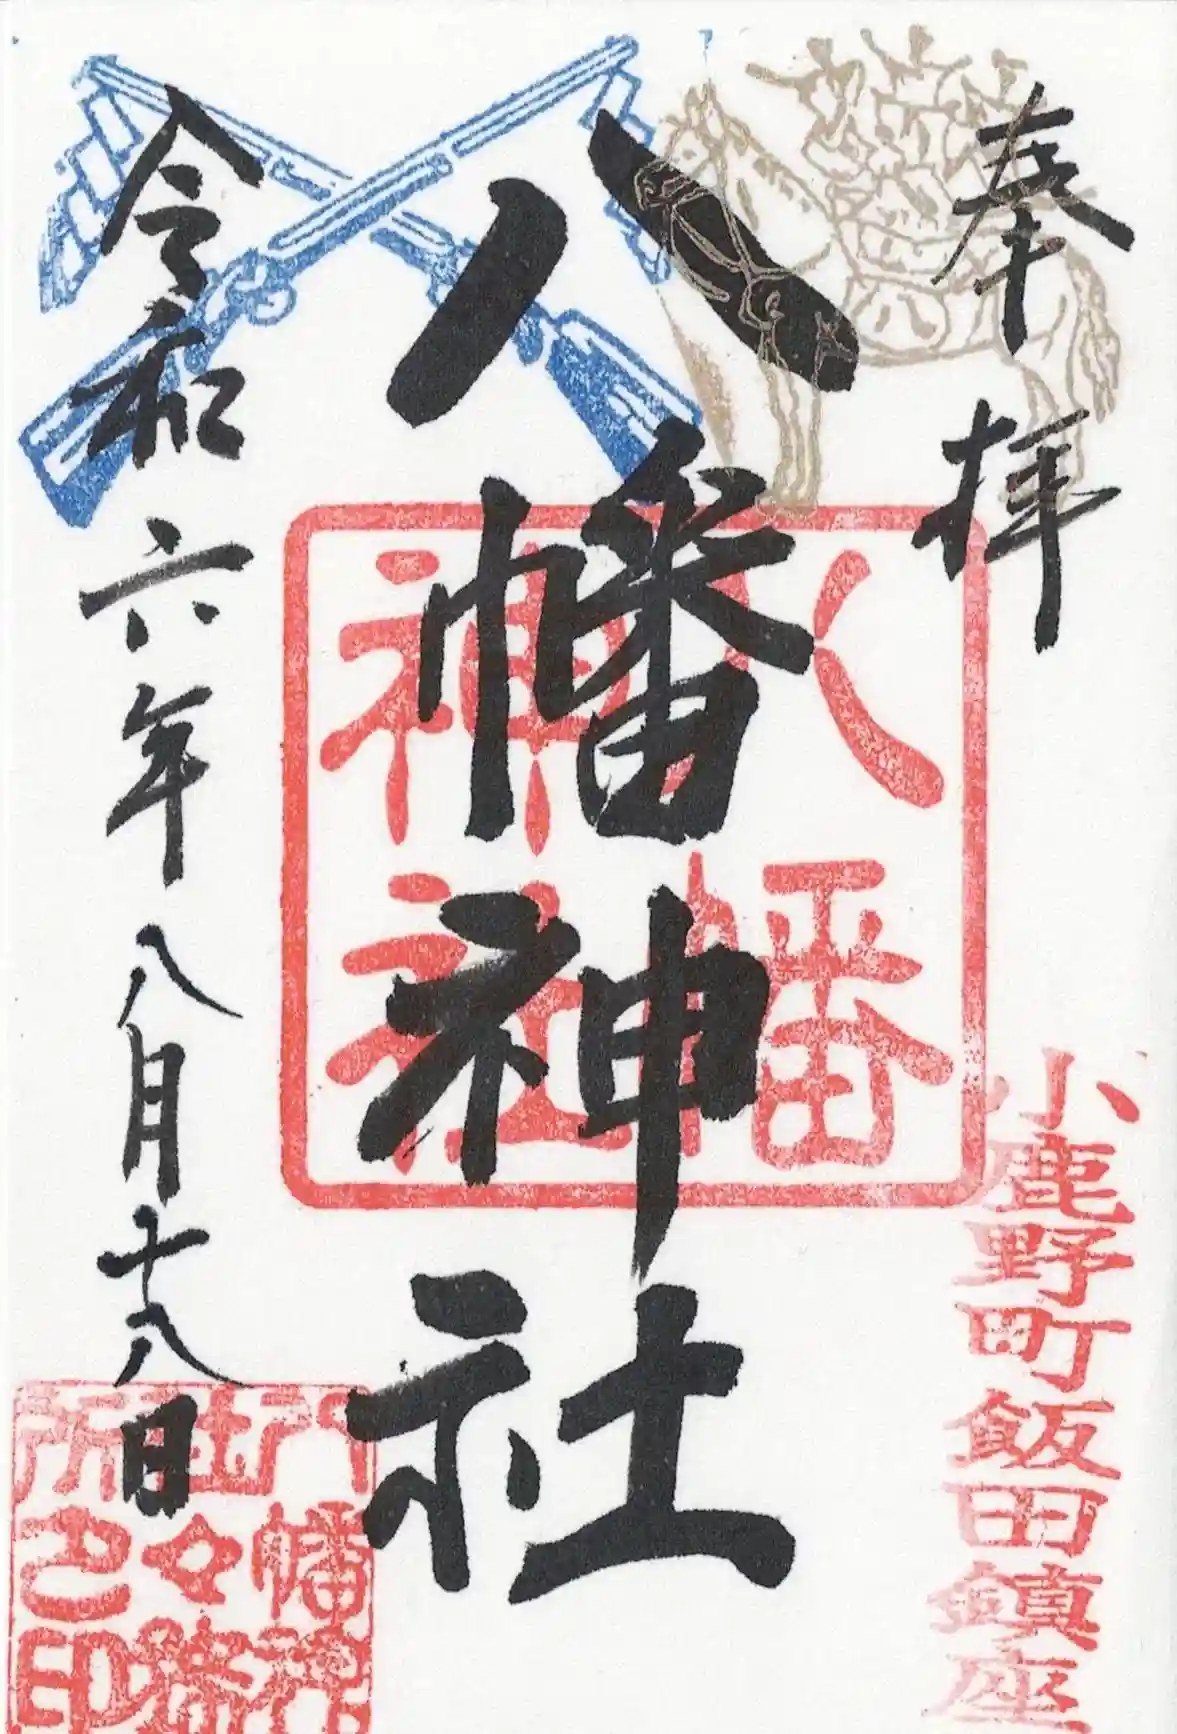 奉拝
八幡神社
令和六年八月十八日
八幡
神社
小鹿野町飯田鎮座
八幡神
社々務
所之印